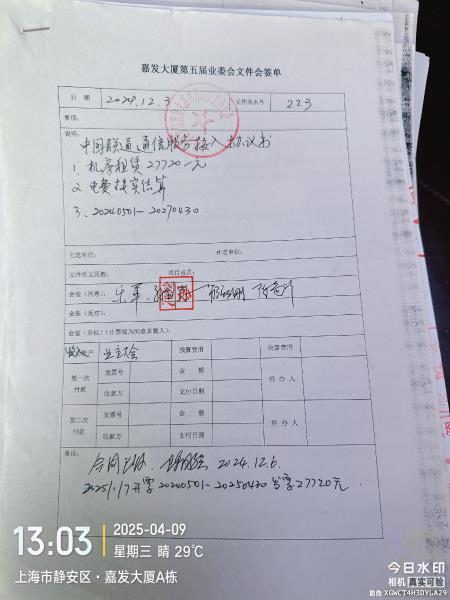 嘉发大厦第五届业委会文件会签单
日 期 2024.12.3 文件流水号 223
事项:
说明:
中国联通通信服务接入协议书
1、机房租赁27720-元
2、电费按实结算
3、20240501-20270430.
主送单位: 抄送单位:
文件正文页数: 项目成员:
会签(同意):
会签(反对):
会签(弃权)(计票视为同意多数人):
业主大会 预算费用 决算费用
第一次付款 发票号 金 额 经 办 人
收款方 支付日期
第二次付款 发票号 金 额 经 办 人
收款方 支付日期
备注:
合同已 2024.12.6.
2025/1/7开票20240501-20250430 27720元.
13:03 2025-04-09
星期三 晴 29℃
上海市静安区·嘉发大厦A栋
今日水印
相机 真实可验
防伪 XGWCT4H3DYLA29